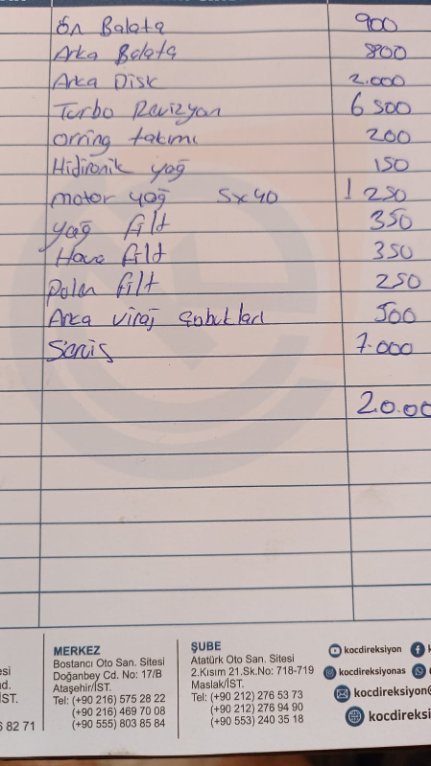 Ön Balata 900
Arka Balata 800
Arka Disk 2.000
Turbo Revizyon 6 500
orring takımı 200
Hidironik yağ 150
motor yağ 5x40 1 250
yağ filt 350
Hava filt 350
polen filt 250
Arka viraj çubukları 500
Servis 7.000
20.00
MERKEZ
Bostancı Oto San. Sitesi
Doğanbey Cd. No: 17/B
Ataşehir/İST.
Tel: (+90 216) 575 28 22
(+90 216) 469 70 08
(+90 555) 803 85 84
ŞUBE
Atatürk Oto San. Sitesi
2.Kısım 21.Sk.No: 718-719
Maslak/İST.
Tel: (+90 212) 276 53 73
(+90 212) 276 94 90
(+90 553) 240 35 18
kocdireksiyon
kocdireksiyonas
kocdireksiyon@
kocdireksi
esi
d.
İST.
6 82 71